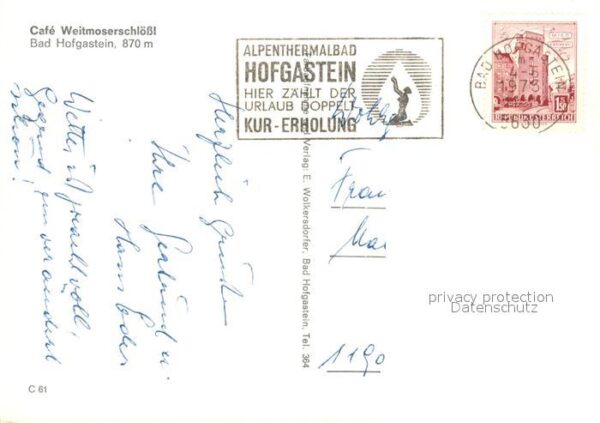 Café Weitmoserschlößl
Bad Hofgastein, 870 m
ALPENTHERMALBAD
HOFGASTEIN
HIER ZÄHLT DER
URLAUB DOPPELT
KUR-ERHOLUNG
BAD HOFGASTEIN
1973
5630
REPUBLIK ÖSTERREICH
Herzlich grüßen
Ihre Gertrud u.
Hans
Wetter ist prachtvoll,
Gegend unverändert
schön!
Verlag: E. Wolkersdorfer, Bad Hofgastein, Tel. 364
Frau
Mar
1190
privacy protection
Datenschutz
C 61